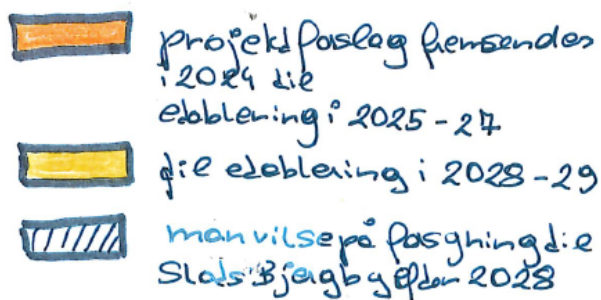 projektforslag fremsendes
i 2024 til
etablering i 2025-27
til etablering i 2028-29
man vil se på forsyning til
Slots Bjergby efter 2028